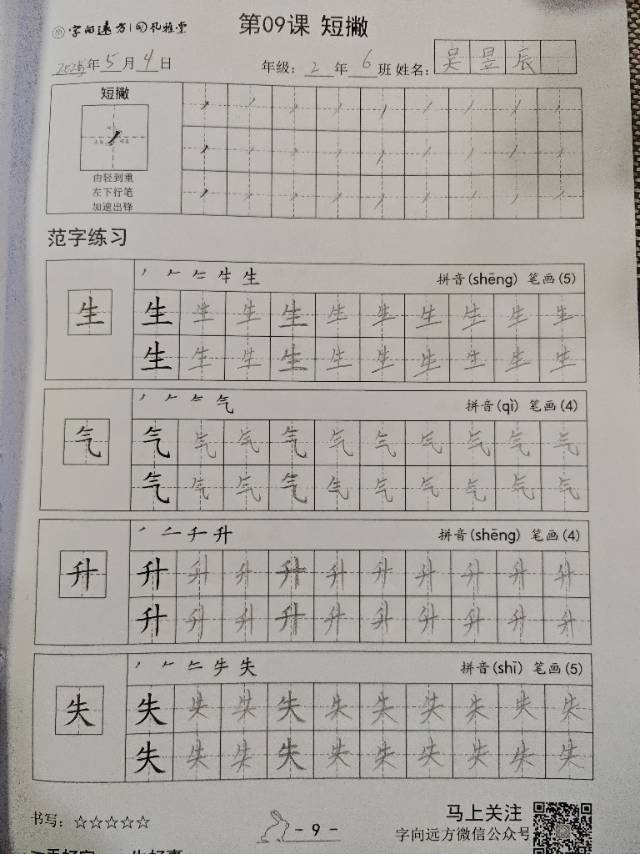 字向远方 孔雅堂 第09课 短撇
2025年5月4日 年级：2年6班 姓名：吴昱辰
短撇
由轻到重
左下行笔
加速出锋
范字练习
生 拼音(shēng) 笔画(5)
生 生 生 生 生 生 生 生 生 生 生
生 生 生 生 生 生 生 生 生 生
气 拼音(qì) 笔画(4)
气 气 气 气 气 气 气 气 气 气 气
气 气 气 气 气 气 气 气 气 气
千 升 拼音(shēng) 笔画(4)
升 升 升 升 升 升 升 升 升 升 升
升 升 升 升 升 升 升 升 升 升
失 拼音(shī) 笔画(5)
失 失 失 失 失 失 失 失 失 失 失
失 失 失 失 失 失 失 失 失 失
书写：☆☆☆☆☆ - 9 - 马上关注
字向远方微信公众号